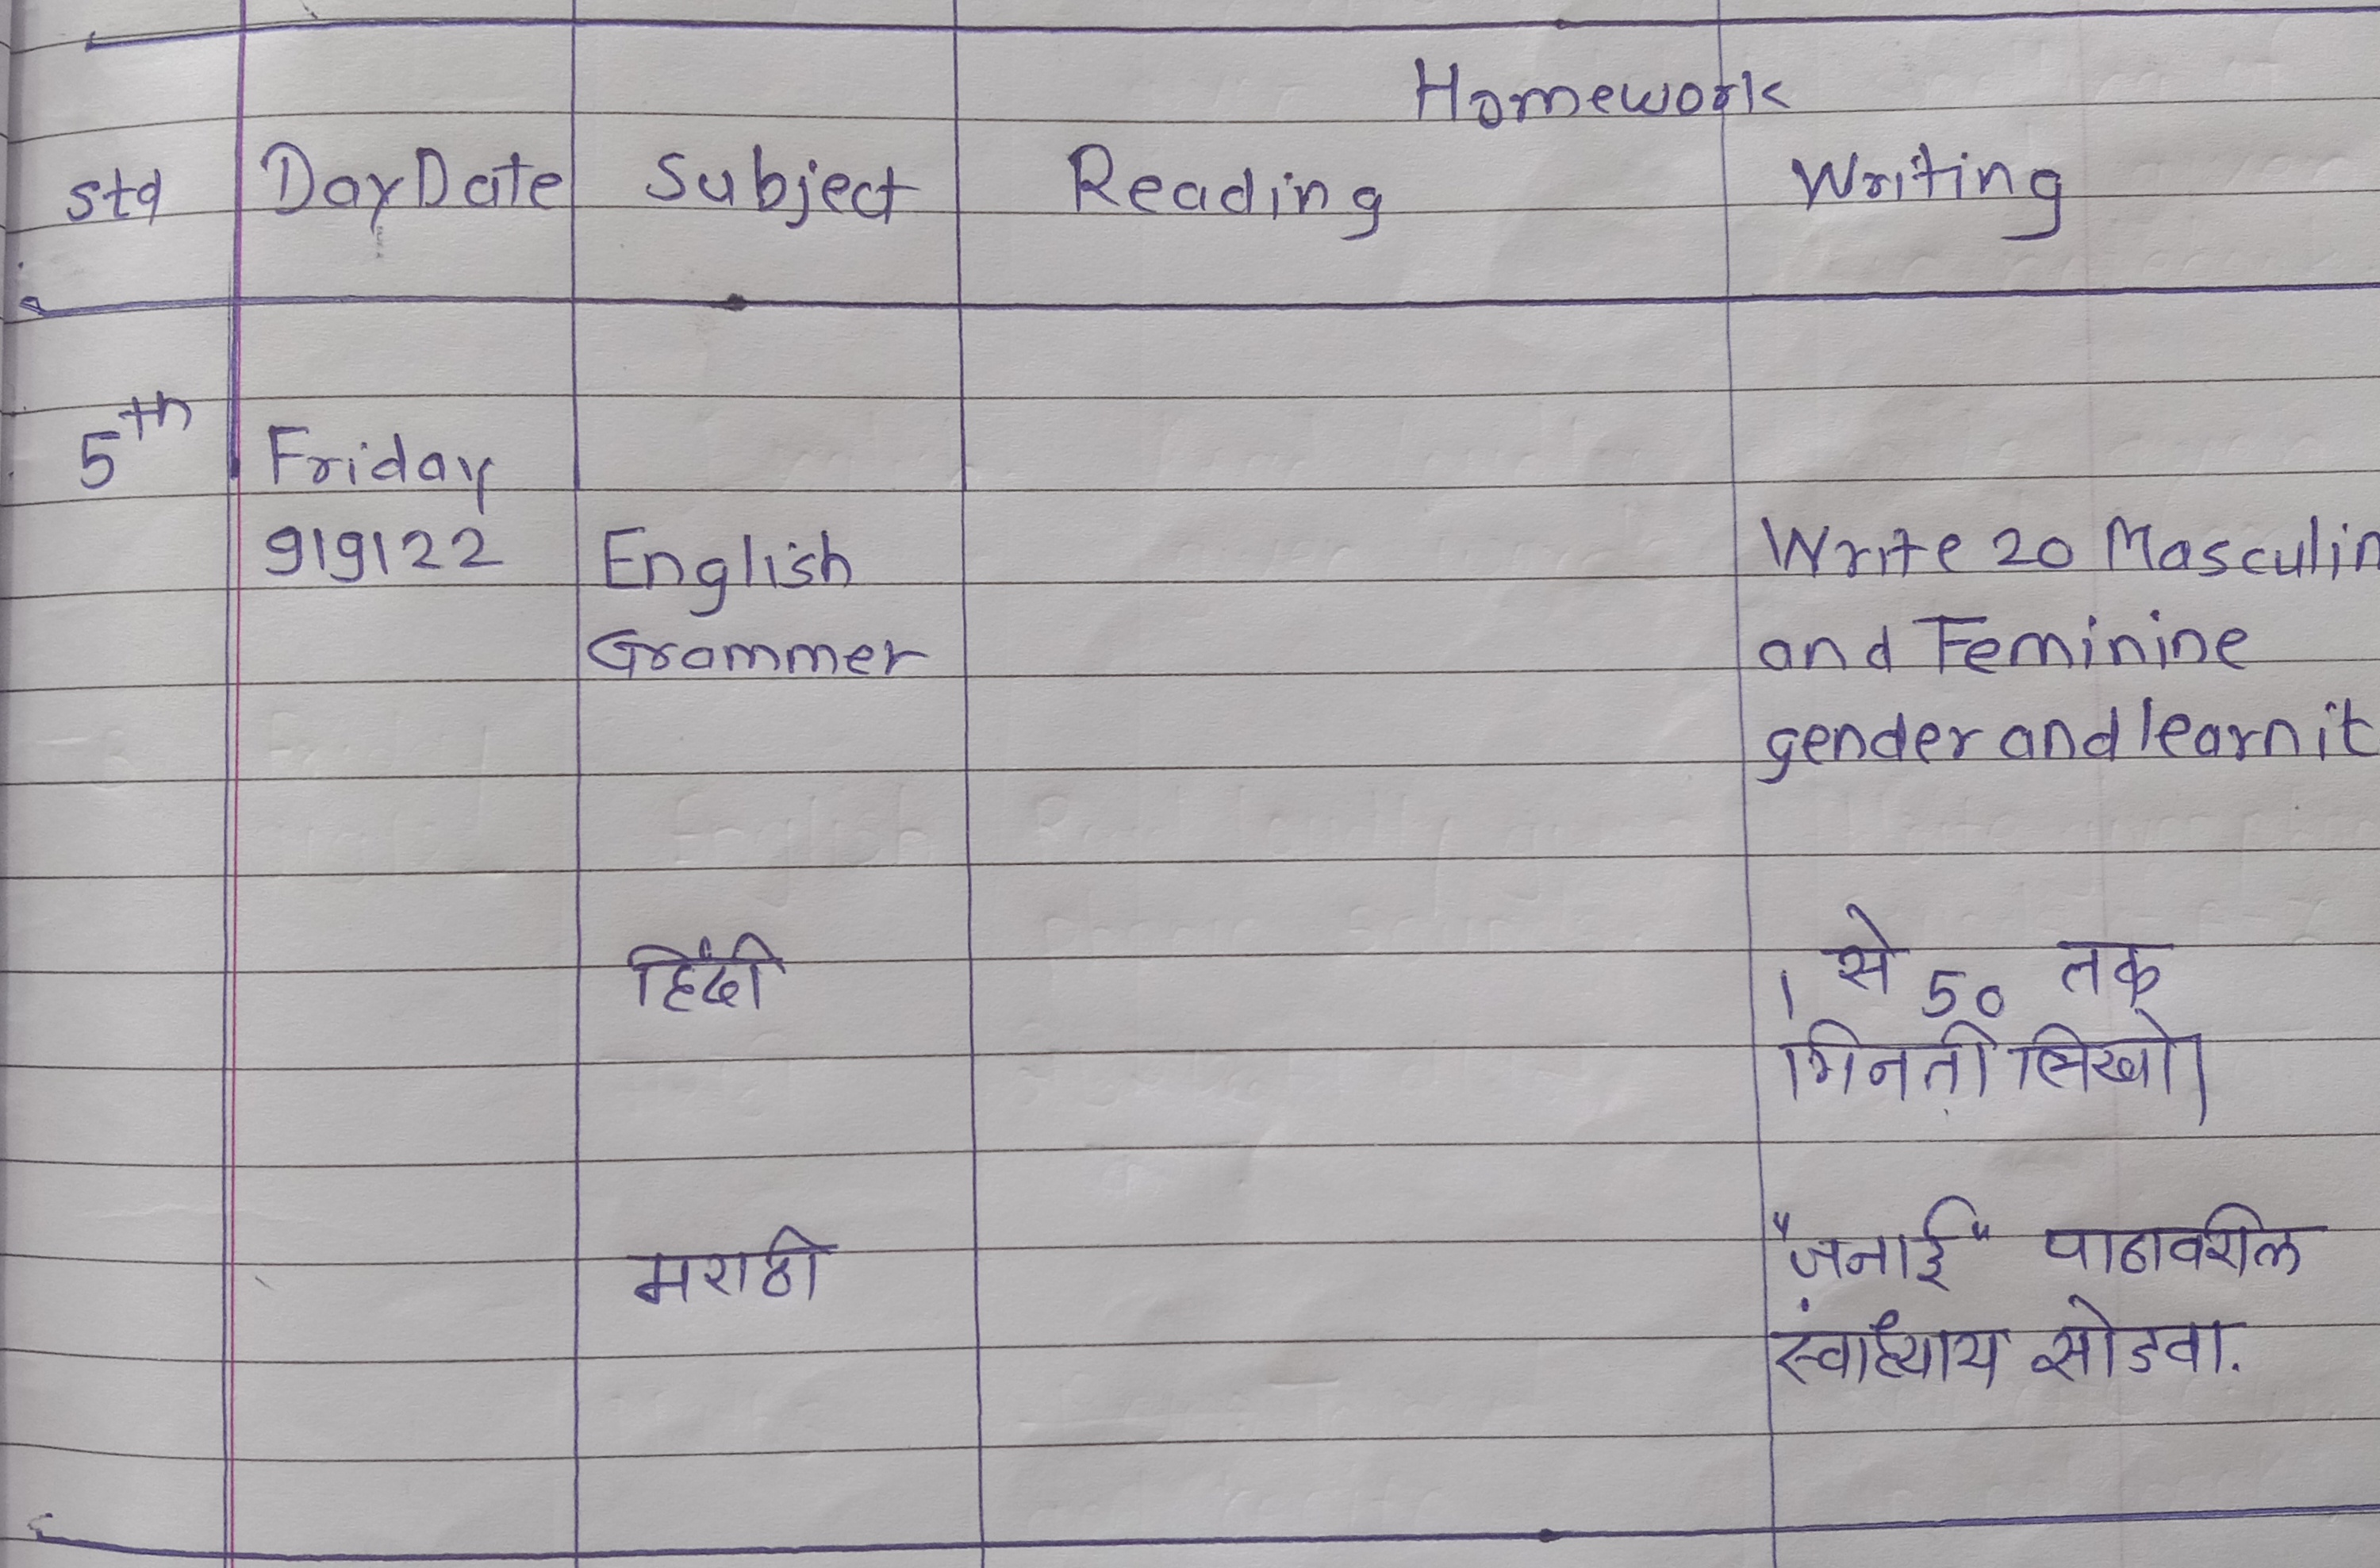 Homework
Std Day Date Subject Reading Writing
5th Friday
9/9/22 English Write 20 Masculin
Grammer and Feminine
gender and learn it
हिंदी 1 से 50 तक
गिनती लिखो|
मराठी "जनाई" पाठावरील
स्वाध्याय सोडवा.